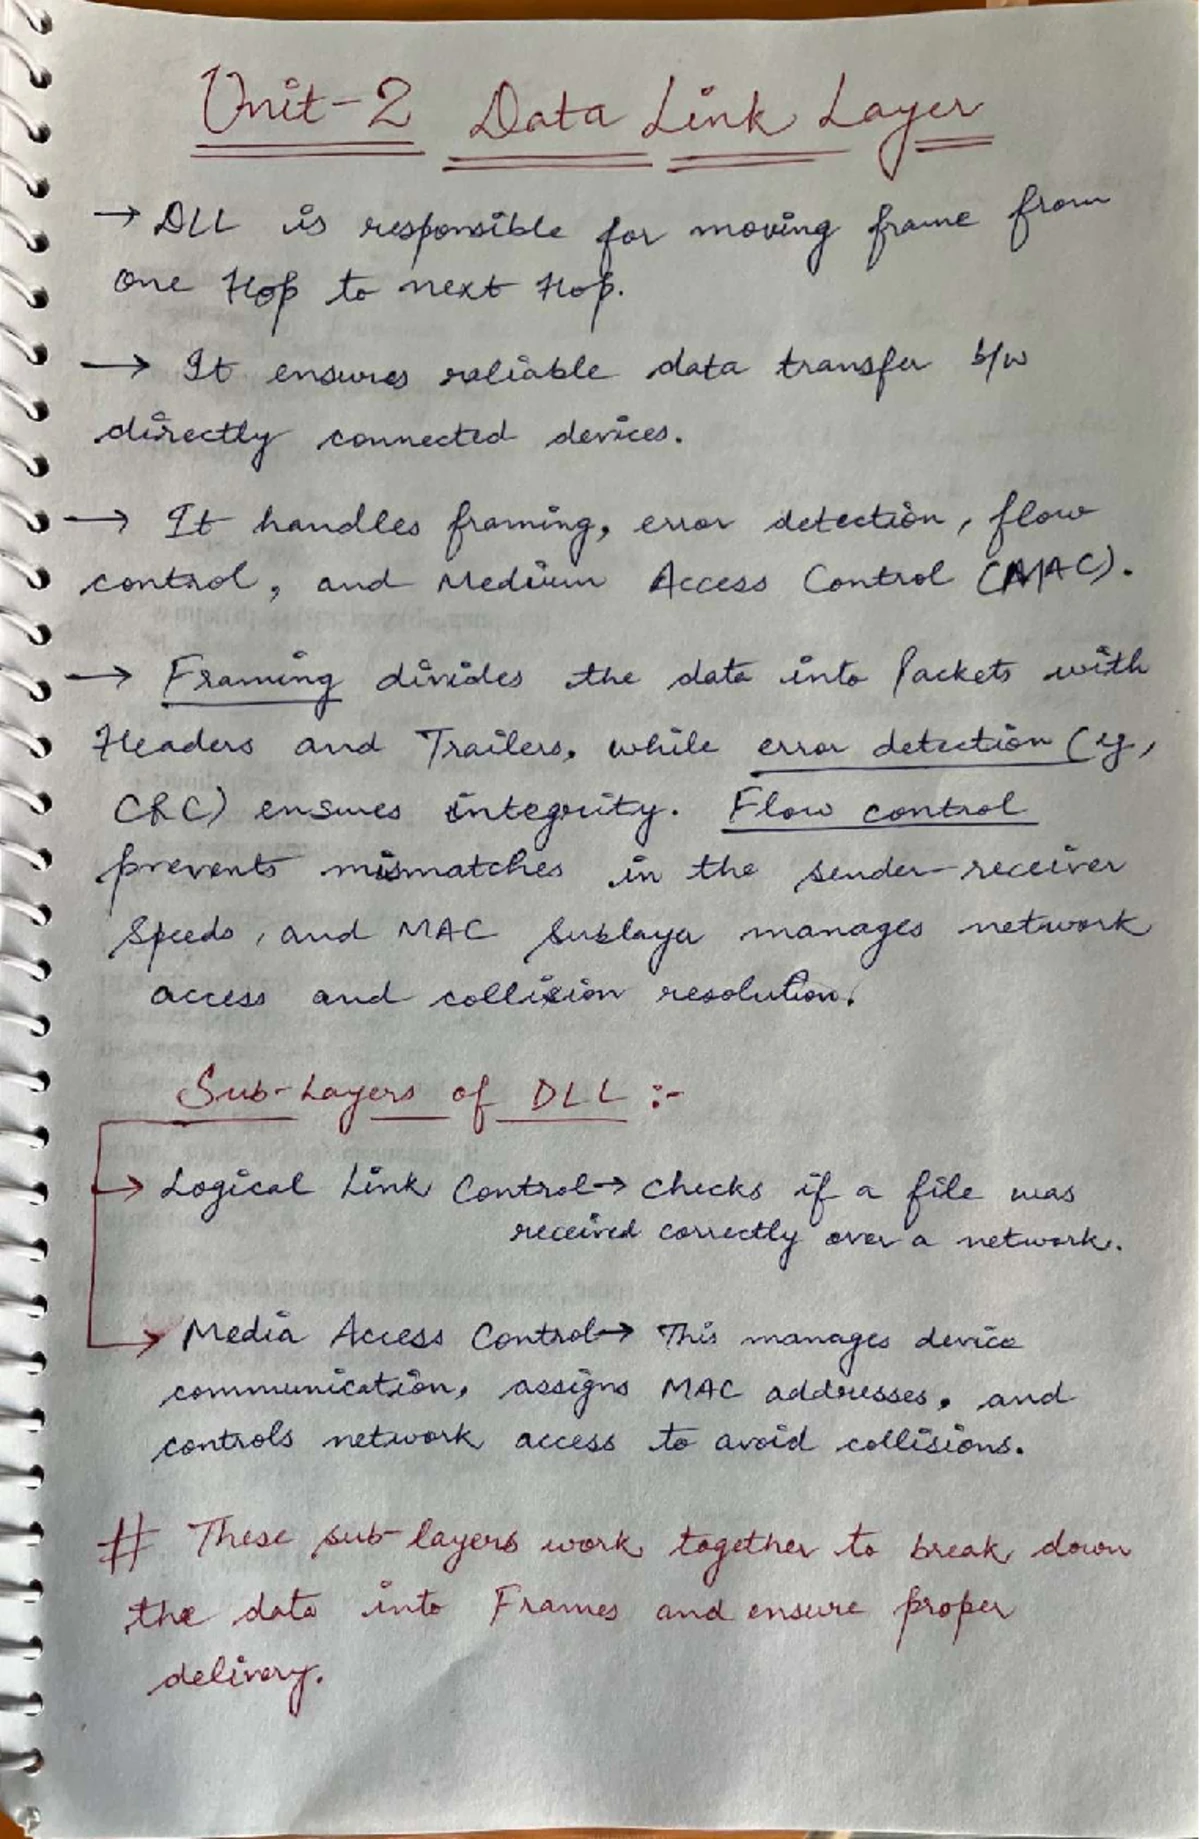 Unit-2 Data Link Layer
→ DLL is responsible for moving frame from
one Hop to next Hop.
→ It ensures reliable data transfer b/w
directly connected devices.
→ It handles framing, error detection, flow
control, and Medium Access Control (MAC).
→ Framing divides the data into Packets with
Headers and Trailers, while error detection (eg,
CRC) ensures integrity. Flow control
prevents mismatches in the sender-receiver
Speeds, and MAC Sublayer manages network
access and collision resolution.
Sub-Layers of DLL :-
→ Logical Link Control → checks if a file was
received correctly over a network.
→ Media Access Control → This manages device
communication, assigns MAC addresses, and
controls network access to avoid collisions.
# These sub-layers work together to break down
the data into Frames and ensure proper
delivery.